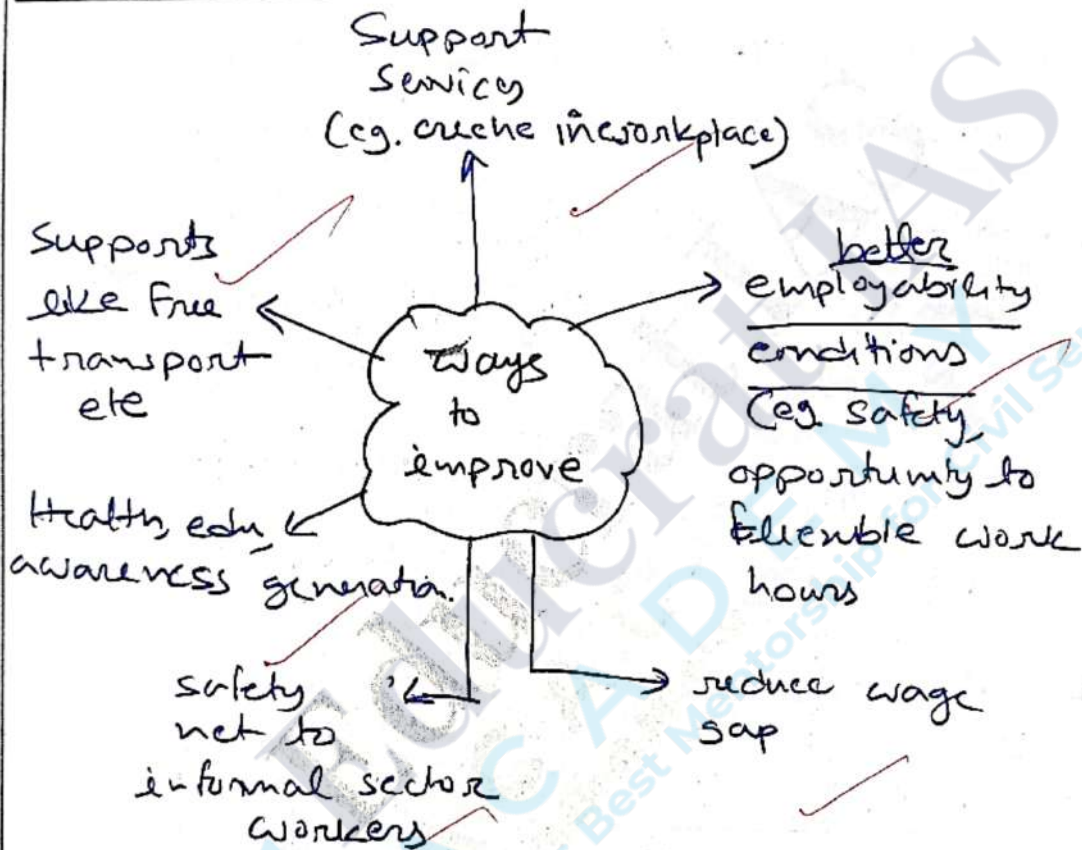 Support
Services
(eg. creche in workplace)
Supports
like Free
transport
etc
better
employability
conditions
(eg. safety,
opportunity to
flexible work
hours
ways
to
improve
Health, edu,
awareness generation.
safety
net to
informal sector
workers
reduce wage
gap
Educrat IAS
ACADEMY
Best Mentorship for Civil Ser